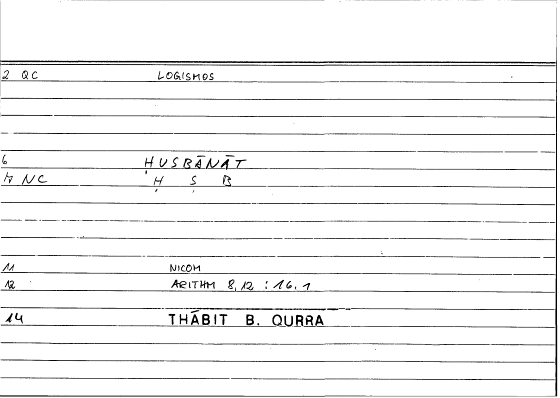 2 QC LOGISMOS
6 ḤUSBĀNĀT
7 NC Ḥ S B
11 NICOM
12 ARITHM 8,12 : 16.1
14 THĀBIT B. QURRA